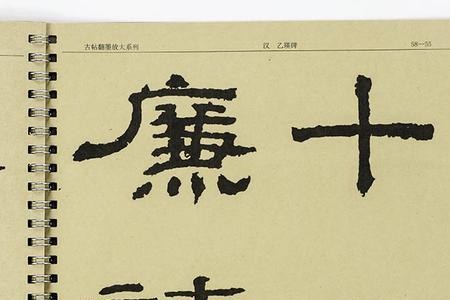 古帖翻墨放大系列 汉 乙瑛碑 58—55
十
廉